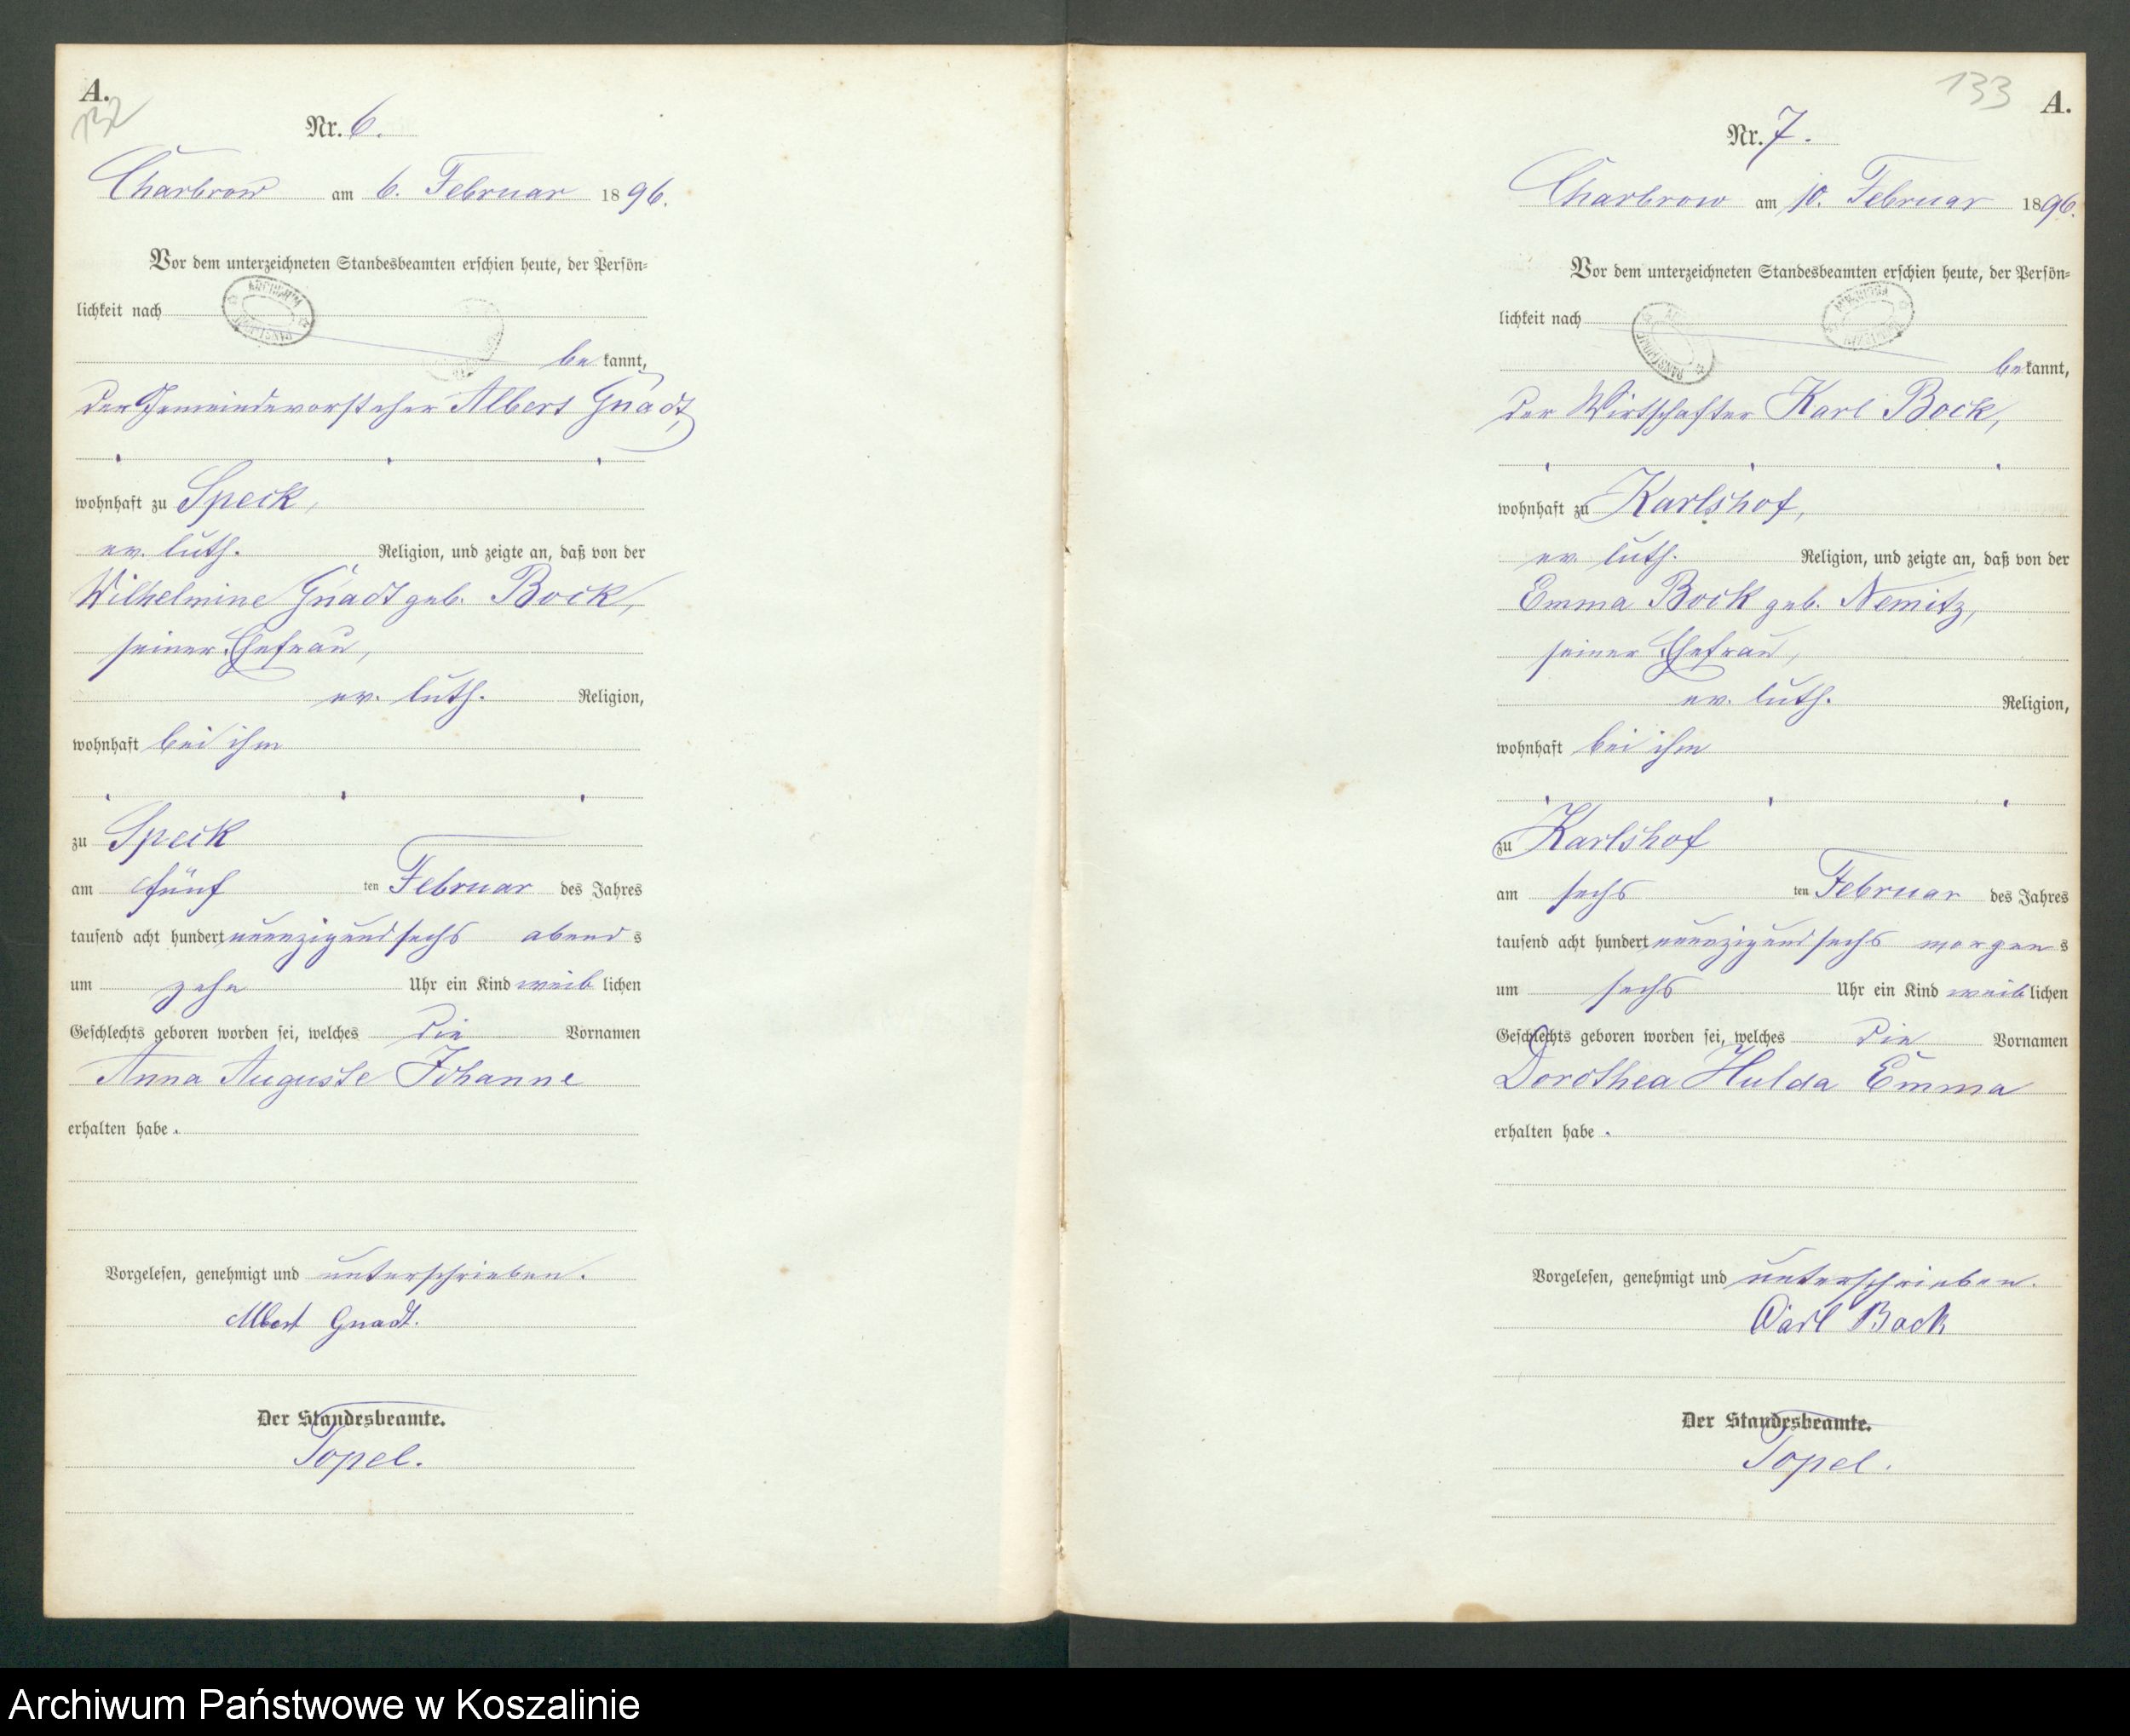 A.
132
Nr. 6.
Charbrow am 6. Februar 1896.
Vor dem unterzeichneten Standesbeamten erschien heute, der Persön-
lichkeit nach
bekannt,
der Gemeindevorsteher Albert Gnadt,
wohnhaft zu Speck,
ev. luth. Religion, und zeigte an, daß von der
Wilhelmine Gnadt geb. Bock,
seiner Ehefrau,
ev. luth. Religion,
wohnhaft bei ihm
zu Speck
am fünf ten Februar des Jahres
tausend acht hundert neunzigundsechs abends
um zehn Uhr ein Kind weiblichen
Geschlechts geboren worden sei, welches die Vornamen
Anna Auguste Johanne
erhalten habe.
Vorgelesen, genehmigt und unterschrieben.
Albert Gnadt.
Der Standesbeamte.
Topel.
133
A.
Nr. 7.
Charbrow am 10. Februar 1896.
Vor dem unterzeichneten Standesbeamten erschien heute, der Persön-
lichkeit nach
bekannt,
der Wirtschafter Karl Bock,
wohnhaft zu Karlshof,
ev. luth. Religion, und zeigte an, daß von der
Emma Bock geb. Nemitz,
seiner Ehefrau,
ev. luth. Religion,
wohnhaft bei ihm
zu Karlshof
am sechs ten Februar des Jahres
tausend acht hundert neunzigundsechs morgens
um sechs Uhr ein Kind weiblichen
Geschlechts geboren worden sei, welches die Vornamen
Dorothea Hulda Emma
erhalten habe.
Vorgelesen, genehmigt und unterschrieben.
Carl Bock
Der Standesbeamte.
Topel.
Archiwum Państwowe w Koszalinie